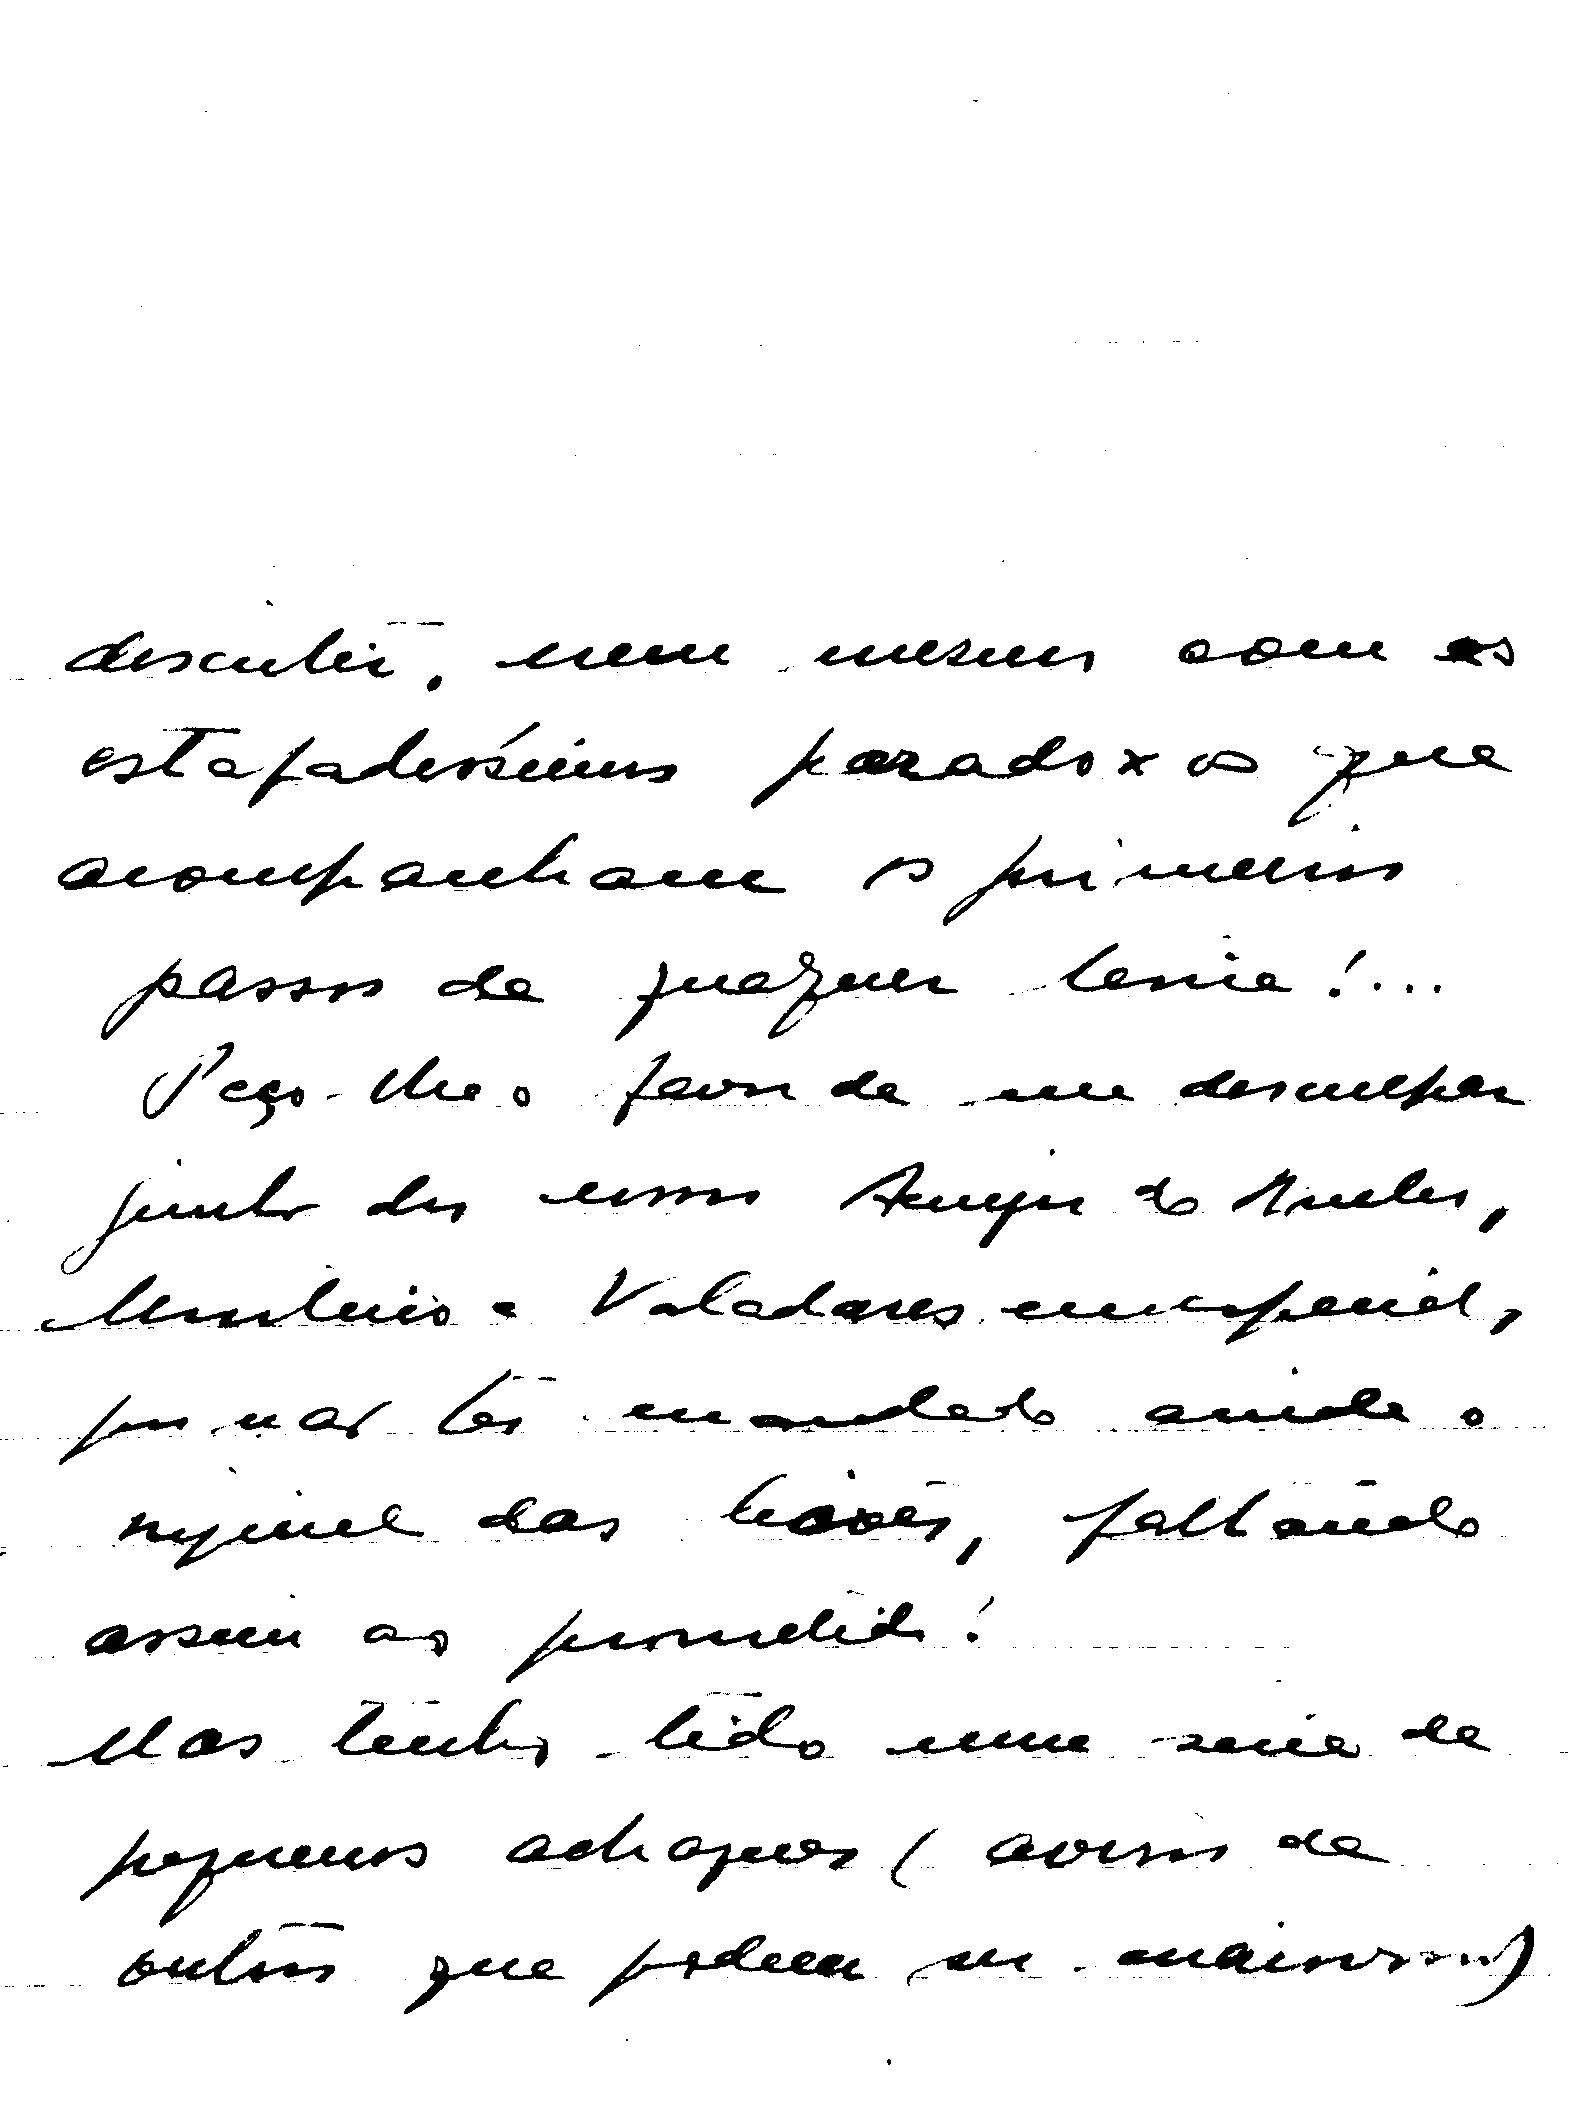 discutir, nem mesmo com os
estafadíssimos paradoxos que
acompanham os primeiros
passos de qualquer teoria!...
Peço-lhe o favor de me desculpar
junto dos nossos
Monteiro e Valadares em especial,
por não ter mandado ainda o
original das lições, faltando
assim ao prometido!
Mas tenho tido uma serie de
pequenos achaques (avisos de
outros que podem ser maiores)